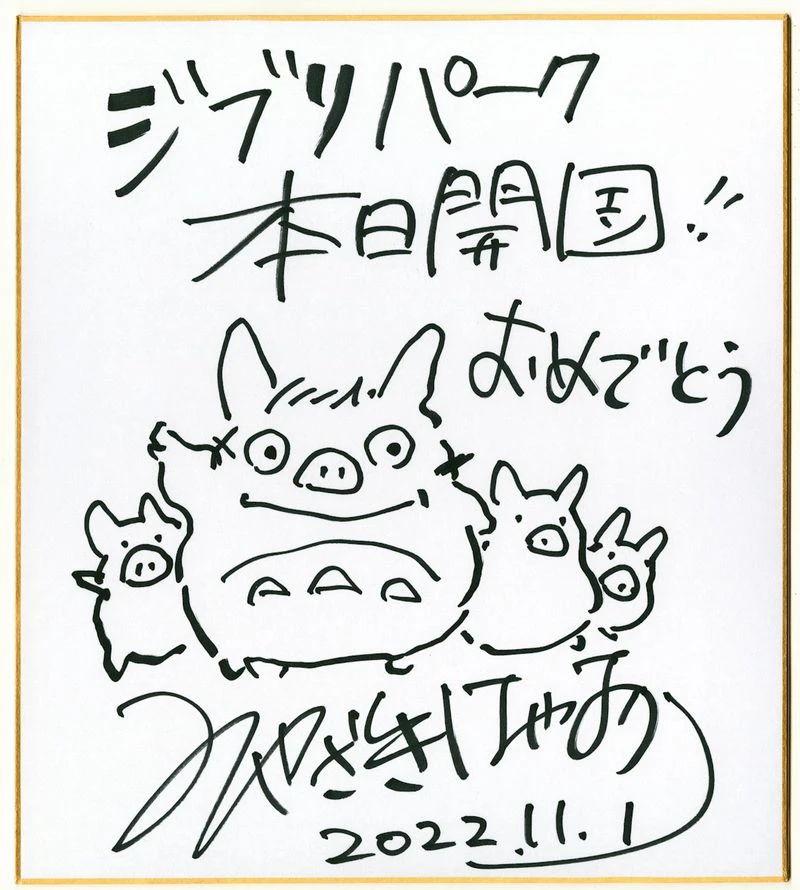 ジブリパーク
本日開国!!
おめでとう
みやざきはやお
2022.11.1